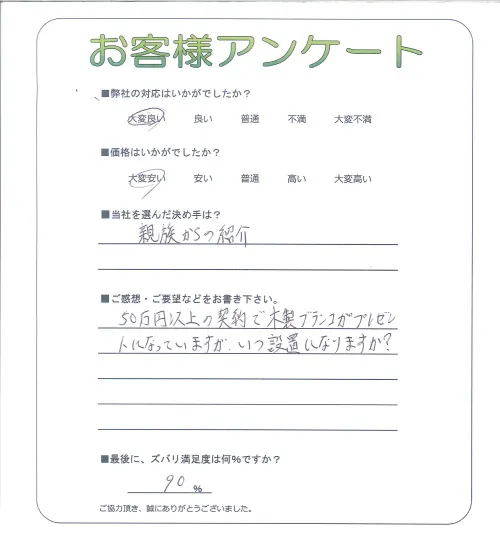 お客様アンケート
■弊社の対応はいかがでしたか？
大変良い 良い 普通 不満 大変不満
■価格はいかがでしたか？
大変安い 安い 普通 高い 大変高い
■当社を選んだ決め手は？
親族からの紹介
■ご感想・ご要望などをお書き下さい。
50万円以上の契約で木製ブランコがプレゼン
トになっていますが、いつ設置になりますか？
■最後に、ズバリ満足度は何％ですか？
90 %
ご協力頂き、誠にありがとうございました。